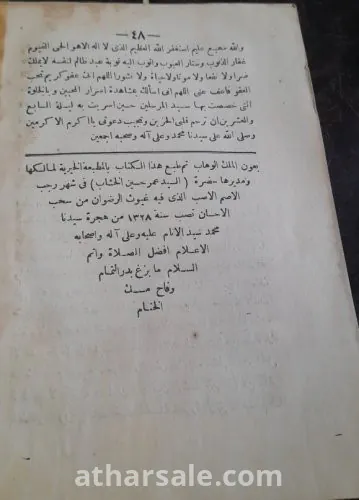 -٤٨-
والله سميع عليم استغفر الله العظيم الذى لا اله الا هو الحى القيوم
غفار الذنوب وستار العيوب واتوب اليه توبة عبد ظالم لنفسه لا يملك
ضرا ولا نفعا ولا موتا ولا حياة ولا نشورا اللهم انك عفو كريم تحب
العفو فاعف عنى اللهم انى اسألك بمشاهدة اسرار المحبين وبالخلوة
التى خصصت بها سيد المرسلين حين اسريت به ليلة السابع
والعشرين ان ترحم قلبى الحزين وتجيب دعوتى يا اكرم الاكرمين
وصلى الله على سيدنا محمد وعلى آله وصحبه اجمعين
بعون الملك الوهاب تم طبع هذا الكتاب بالمطبعة الخيرية لمالكها
ومديرها حضرة (السيد عمر حسين الخشاب) فى شهر رجب
الاصم الاسب الذى فيه غيوث الرضوان من سحب
الاحسان تصب سنة ١٣٢٨ من هجرة سيدنا
محمد سيد الانام عليه وعلى آله واصحابه
الاعلام افضل الصلاة واتم
السلام ما بزغ بدر التمام
وفاح مسك
الختام
atharsale.com